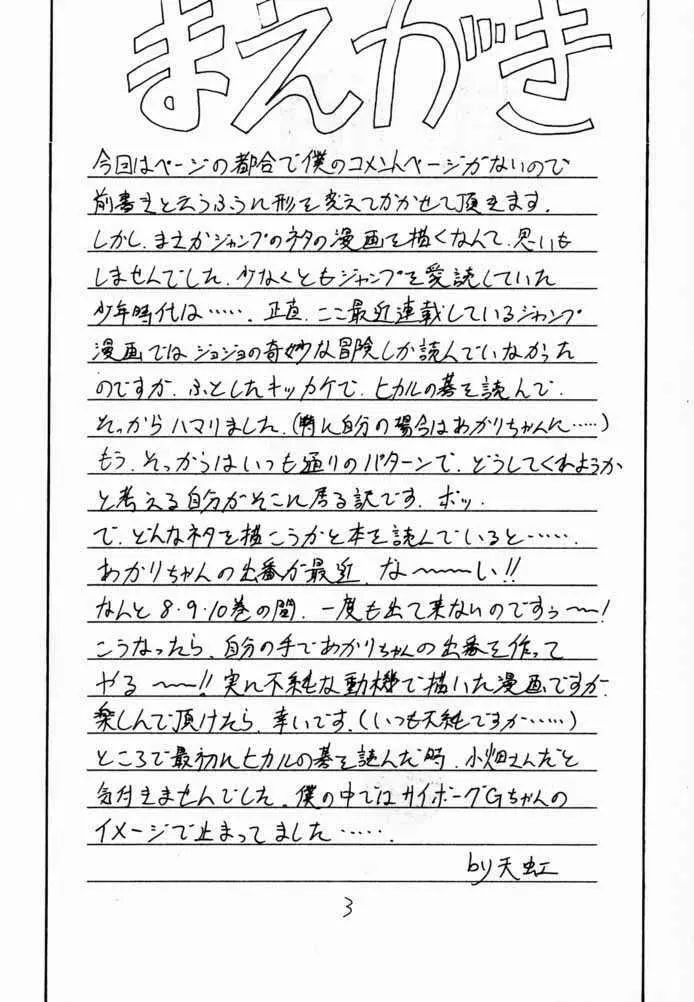 まえがき
今回はページの都合で僕のコメントページがないので
前書きと云うふうに形を変えてかかせて頂きます.
しかし、まさかジャンプのネタの漫画を描くなんて、思いも
しませんでした、少なくともジャンプを愛読していた
少年時代は……、正直、ここ最近連載しているジャンプ
漫画ではジョジョの奇妙な冒険しか読んでいなかった
のですが、ふとしたキッカケで、ヒカルの碁を読んで、
そっからハマりました、(特に自分の場合はあかりちゃんに……)
もう、そっからはいつも通りのパターンで、どうしてくれようか
と考える自分がそこに居る訳です、ポッ、
で、どんなネタを描こうかと本を読んでいると……、
あかりちゃんの出番が最近、な〜〜い!!
なんと8・9・10巻の間、一度も出て来ないのですぅ〜!
こうなったら、自分の手であかりちゃんの出番を作って
やる〜〜!!実に不純な動機で描いた漫画ですが、
楽しんで頂けたら、幸いです、(いつも不純ですが……)
ところで最初にヒカルの碁を読んだ時、小畑さんだと
気付きませんでした、僕の中ではサイボーグGちゃんの
イメージで止まってました……、
by天虹
3